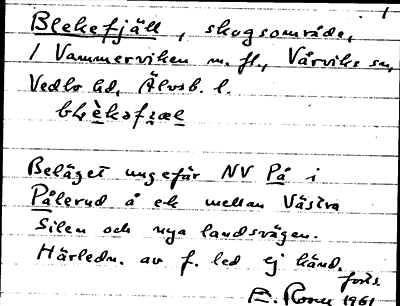 1
Blekefjäll, skogsområde,
/ Vammerviken m. fl., Vårviks sn,
Vedbo hd, Älvsb. l.
blèkəfjæl
Beläget ungefär NV På i
Pålerud å ek mellan Västra
Silen och nya landsvägen.
Härledn. av f. led ej känd.
forts.
E. 1961